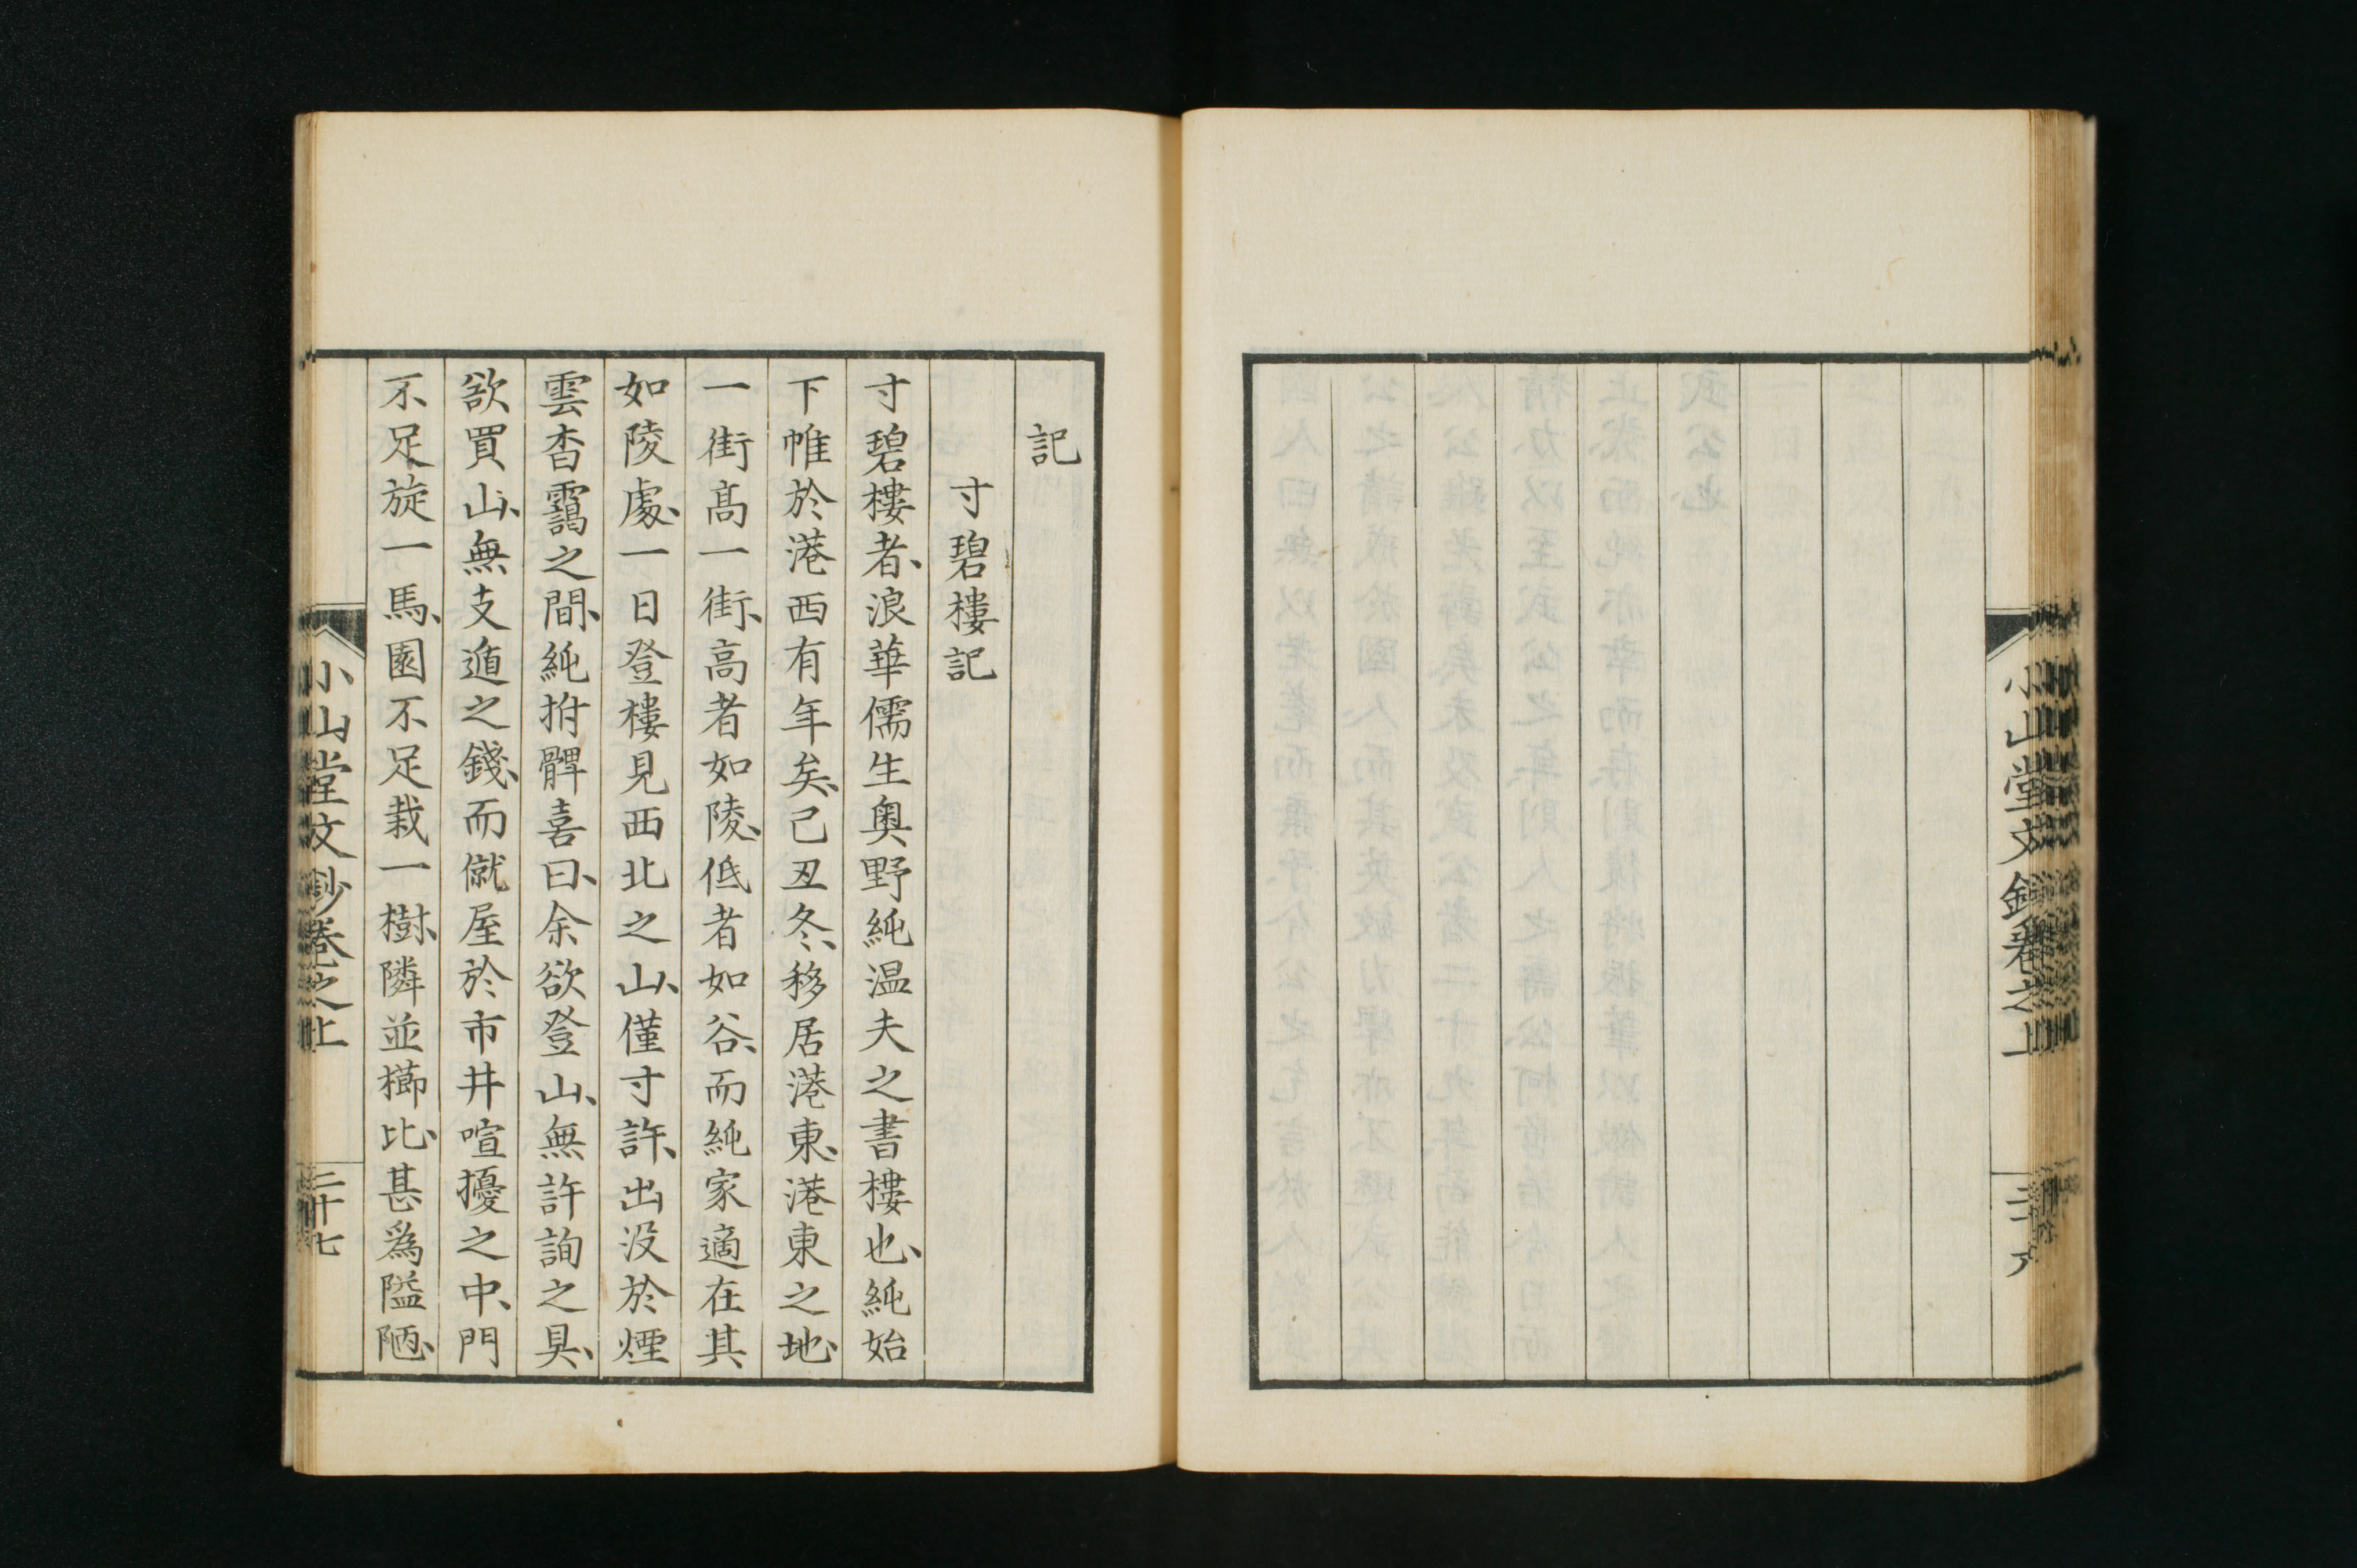 小山堂文鈔卷之上
記
寸碧樓記
寸碧樓者、浪華儒生奧野純温夫之書樓也、純始
下帷於港西有年矣、己丑冬、移居港東、港東之地、
一街高一街、高者如陵、低者如谷、而純家適在其
如陵處、一日登樓見西北之山、僅寸許、出没於煙
雲杳靄之間、純拊髀喜曰、余欲登山、無許詢之具、
欲買山、無支遁之錢、而僦屋於市井喧擾之中、門
不足旋一馬、園不足栽一樹、隣並櫛比、甚爲隘陋、
小山堂文鈔卷之上
二十七